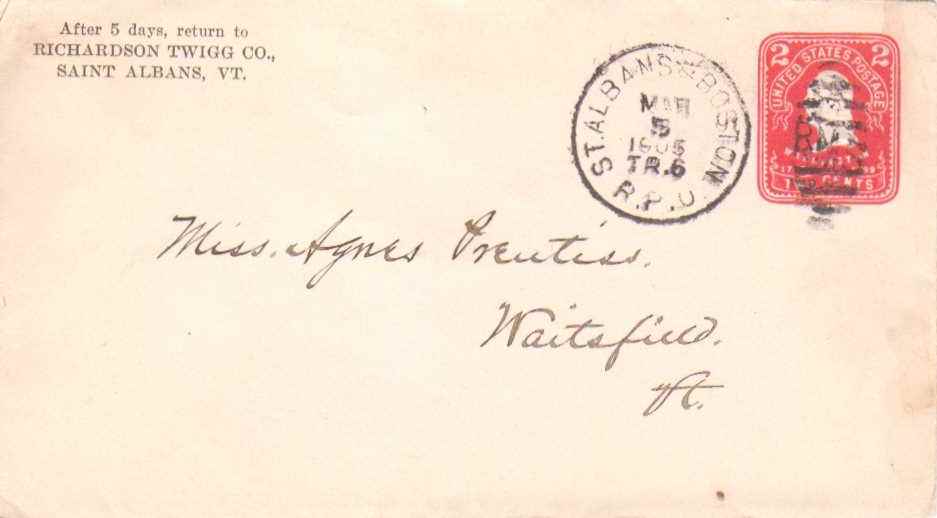 After 5 days, return to
RICHARDSON TWIGG CO.,
SAINT ALBANS, VT.
ST. ALBANS & BOSTON
MAR
5
1905
TR.6
R.P.O.
2 2
UNITED STATES POSTAGE
CENTS
Miss. Agnes Prentiss.
Waitsfield.
Vt.